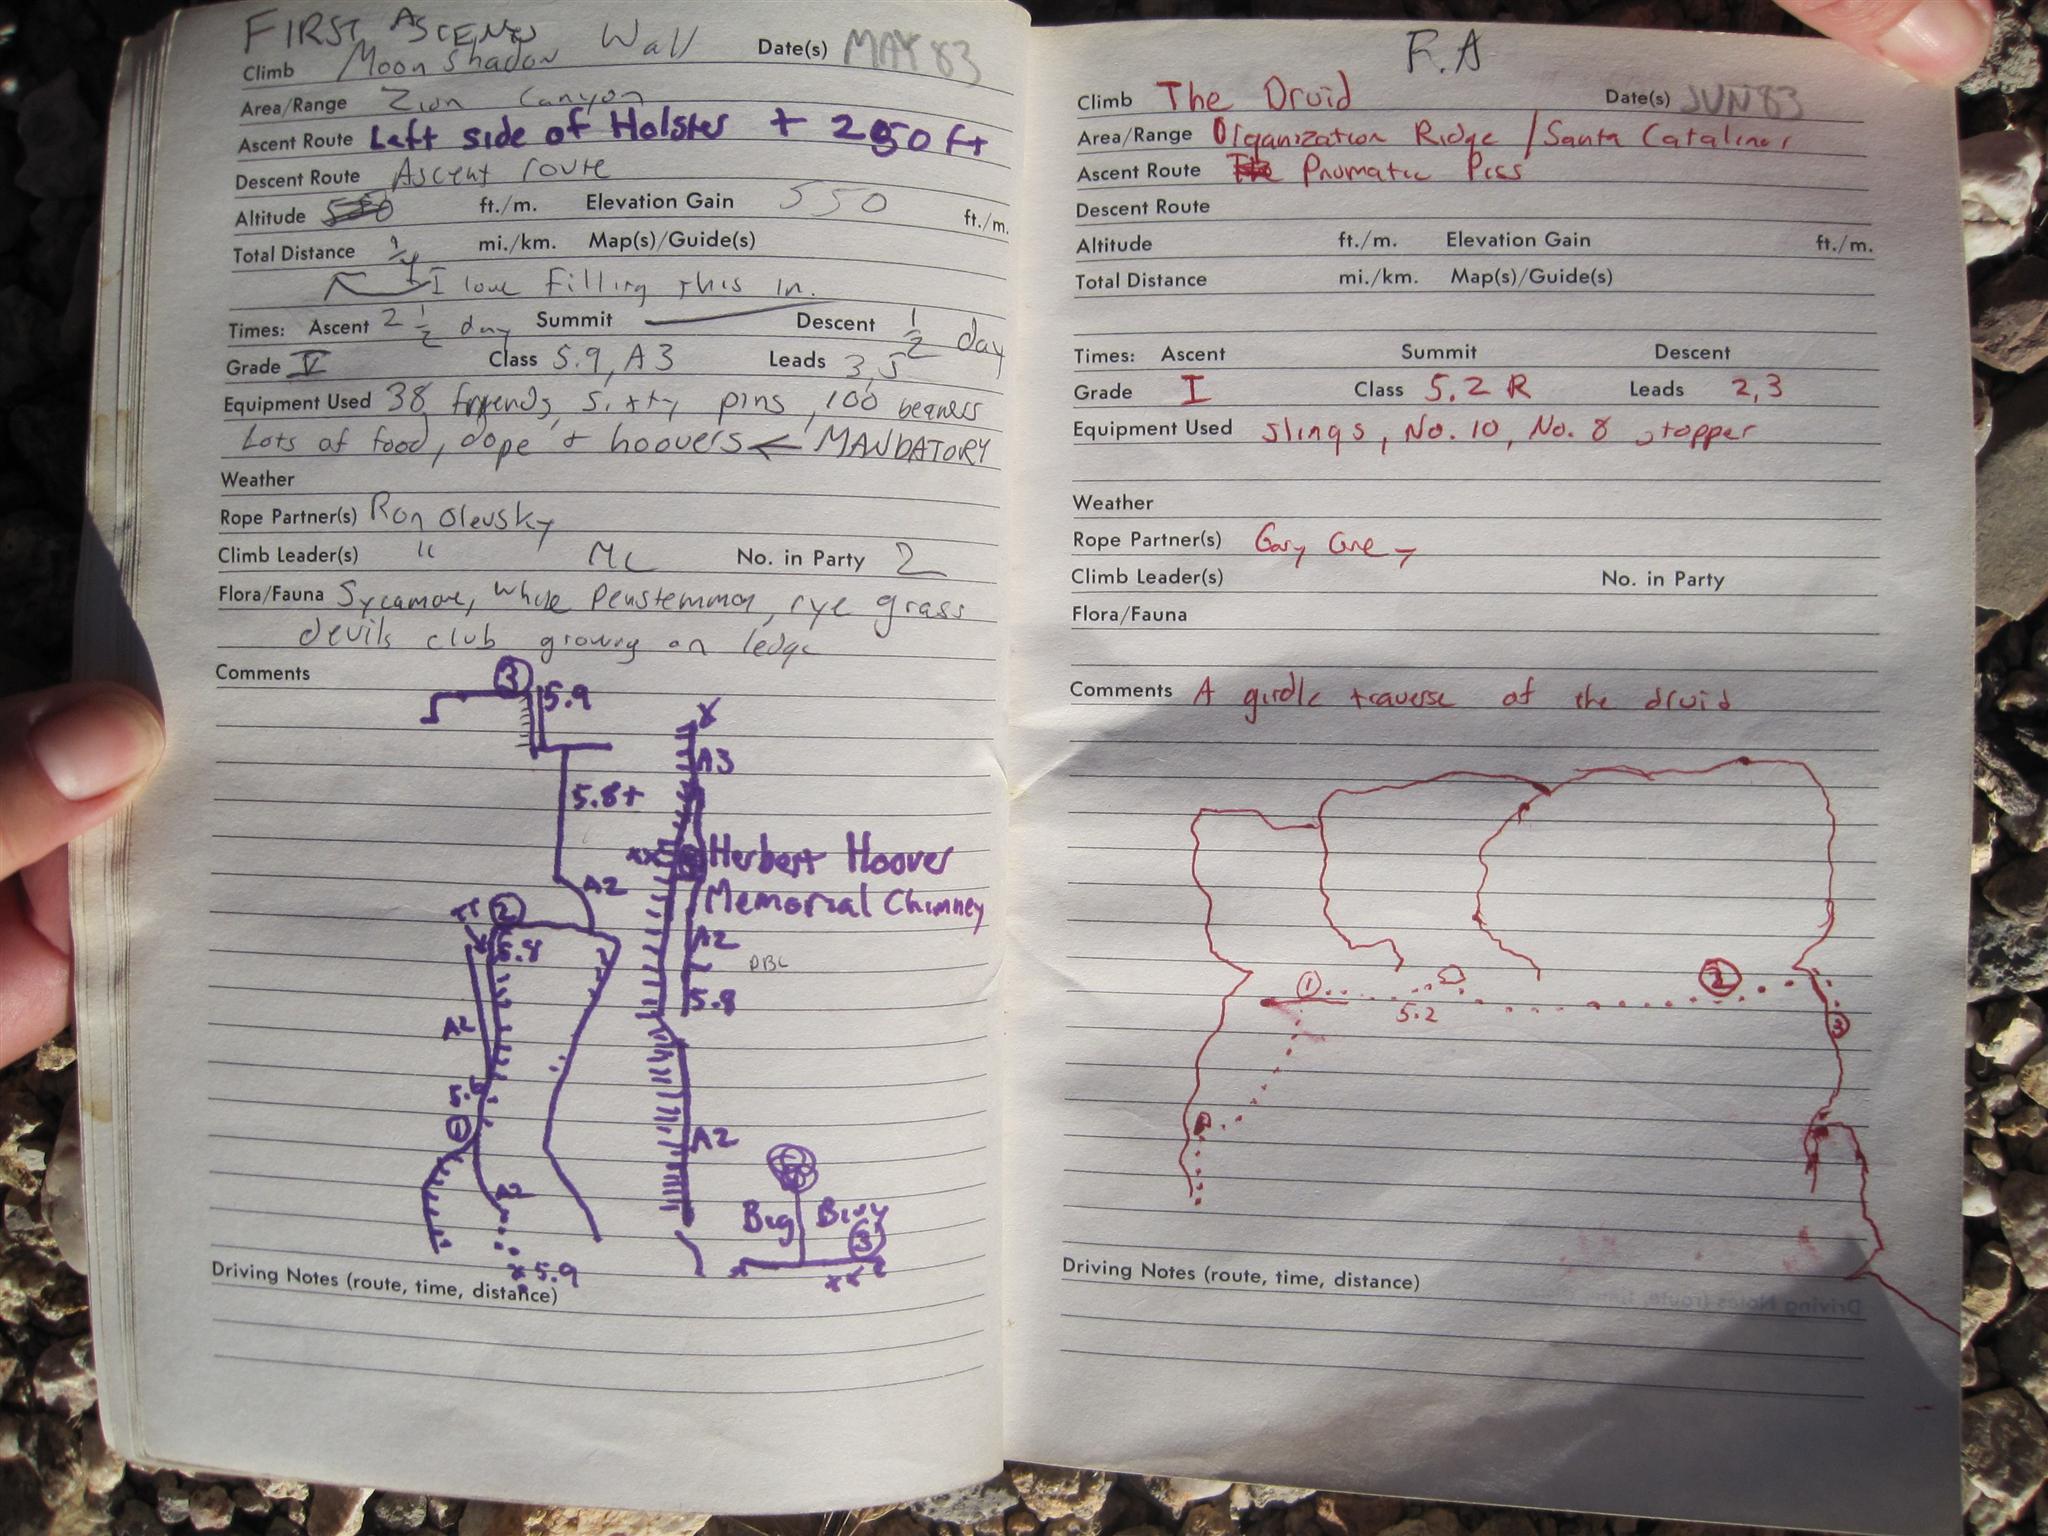 FIRST ASCENT
Climb Moon Shadow Wall Date(s) MAY 83
Area/Range Zion Canyon
Ascent Route Left side of Holster + 250 ft
Descent Route Ascent route
Altitude 550 ft./m. Elevation Gain 550 ft./m.
Total Distance 1/4 mi./km. Map(s)/Guide(s)
I love filling this in.
Times: Ascent 2 1/2 day Summit Descent 1/2 day
Grade V Class 5.9, A3 Leads 3,5
Equipment Used 38 friends, sixty pins, 100 beaners
Lots of food, dope + hoovers ← MANDATORY
Weather
Rope Partner(s) Ron Olevsky
Climb Leader(s) " No. in Party 2
Flora/Fauna Sycamore, white Penstemmon, rye grass
devils club growing on ledge
Comments
3
5.9
X
A3
5.8+
xx
Herbert Hoover
Memorial Chimney
A2
2
5.8
A2
5.8
A2
1
A2
A2
Big Bivy
3
x 5.9
xx
Driving Notes (route, time, distance)
F.A
Climb The Druid Date(s) JUN 83
Area/Range Organization Ridge / Santa Catalinas
Ascent Route Pnumatic Pigs
Descent Route
Altitude ft./m. Elevation Gain ft./m.
Total Distance mi./km. Map(s)/Guide(s)
Times: Ascent Summit Descent
Grade I Class 5.2 R Leads 2,3
Equipment Used slings, No. 10, No. 8 stopper
Weather
Rope Partner(s) Gary
Climb Leader(s) No. in Party
Flora/Fauna
Comments A girdle traverse of the druid
1
2
5.2
3
Driving Notes (route, time, distance)